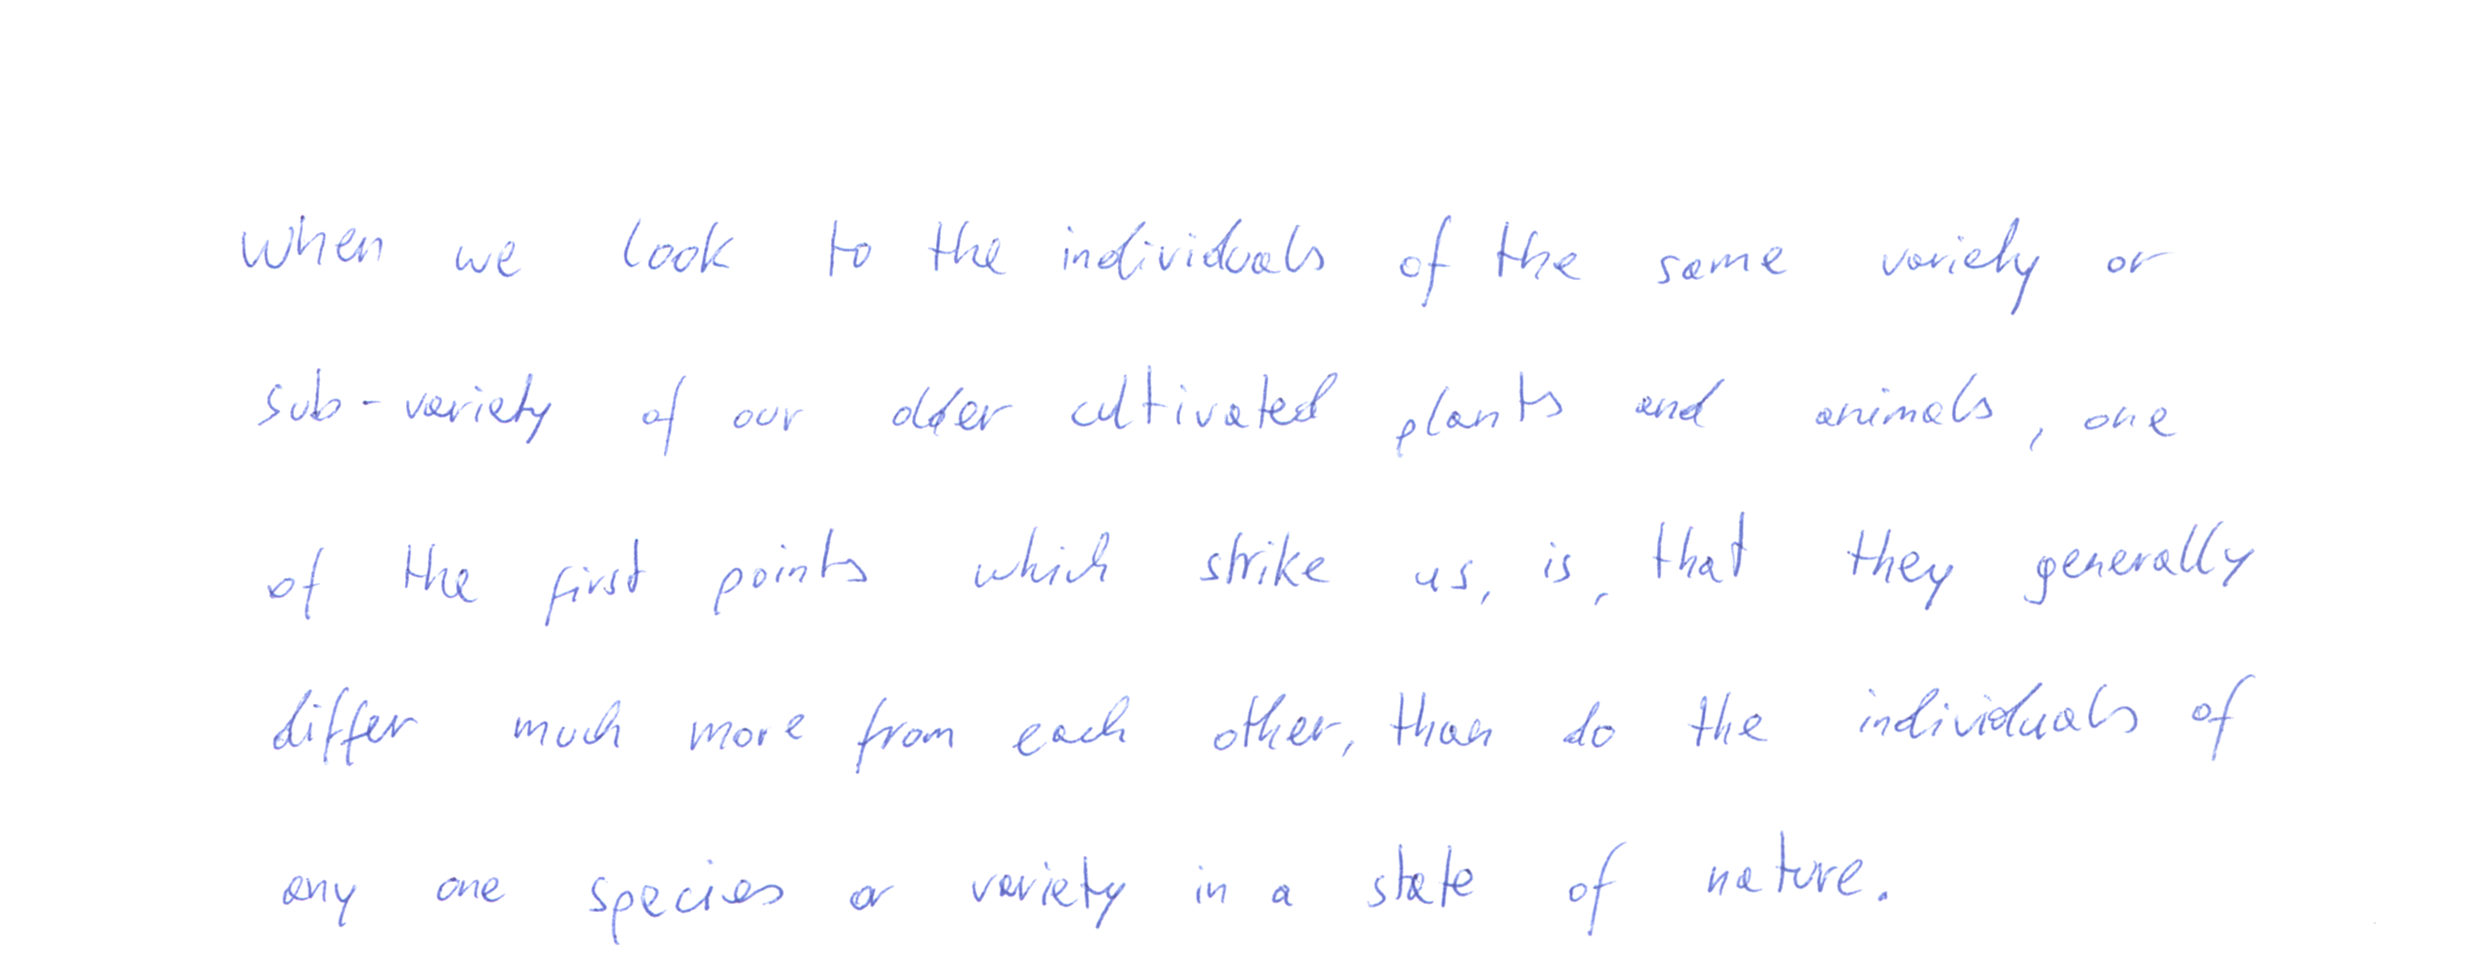 When we look to the individuals of the same variety or
sub-variety of our older cultivated plants and animals, one
of the first points which strike us, is, that they generally
differ much more from each other, than do the individuals of
any one species or variety in a state of nature.